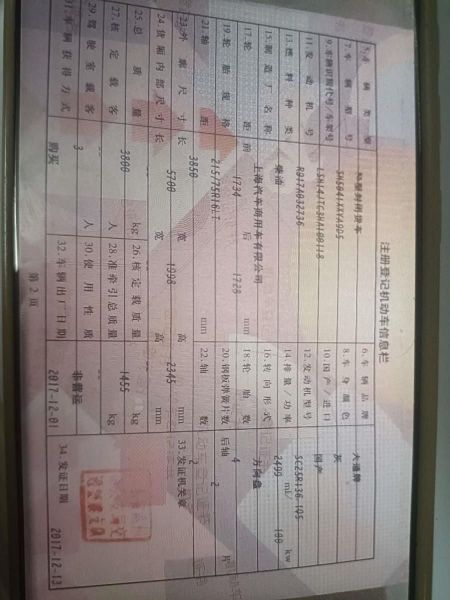 注册登记机动车信息栏
5.车辆类型 轻型封闭货车 6.车辆品牌 大通牌
7.车辆型号 SH5041XXYA9D5 8.车身颜色 灰
9.车辆识别代号/车架号 LSH14JTC3HA108118 10.国产/进口 国产
11.发动机号 R917A032736 12.发动机型号 SC25R136.1Q5
13.燃料种类 柴油 14.排量/功率 2499 mL/ 100 kw
15.制造厂名称 上海汽车商用车有限公司 16.转向形式 方向盘
17.轮距 前 1734 后 1728 mm 18.轮胎数 4
19.轮胎规格 215/75R16LT 20.钢板弹簧片数 后轴 2 片
21.轴距 3850 mm 22.轴数 2
23.外廓尺寸 长 5700 宽 1998 高 2345 mm 33.发证机关章
24.货厢内部尺寸 长 宽 高 mm
25.总质量 3800 kg 26.核定载质量 1455 kg
27.核定载客 人 28.准牵引总质量 kg
29.驾驶室载客 3 人 30.使用性质 非营运
31.车辆获得方式 购买 32.车辆出厂日期 2017-12-01 34.发证日期 2017-12-13
第2页